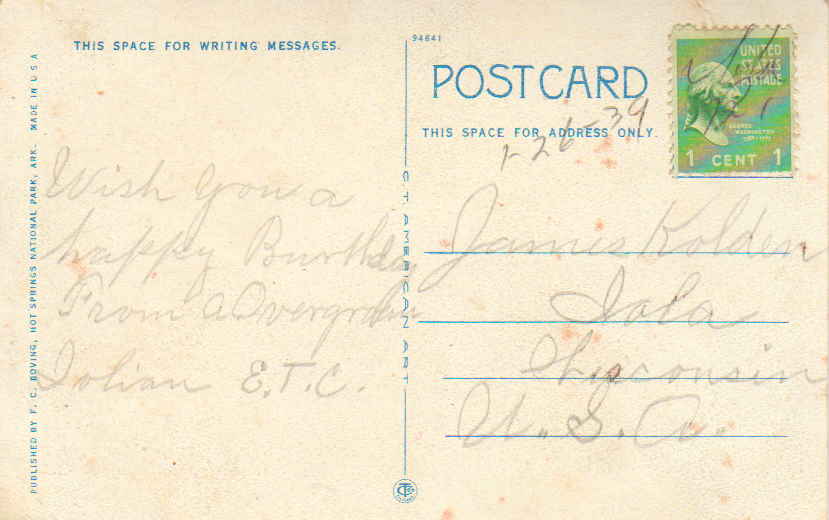 THIS SPACE FOR WRITING MESSAGES.
Wish you a
happy Burthday
From a Overgrown
Iolian E.T.C.
PUBLISHED BY F. C. BOVING, HOT SPRINGS NATIONAL PARK, ARK. MADE IN U S A
C T AMERICAN ART
94641
POST CARD
THIS SPACE FOR ADDRESS ONLY.
1-26-39
UNITED
STATES
POSTAGE
GEORGE
WASHINGTON
1 CENT 1
James Kolden
Iola
Wisconsin
U.S.A.